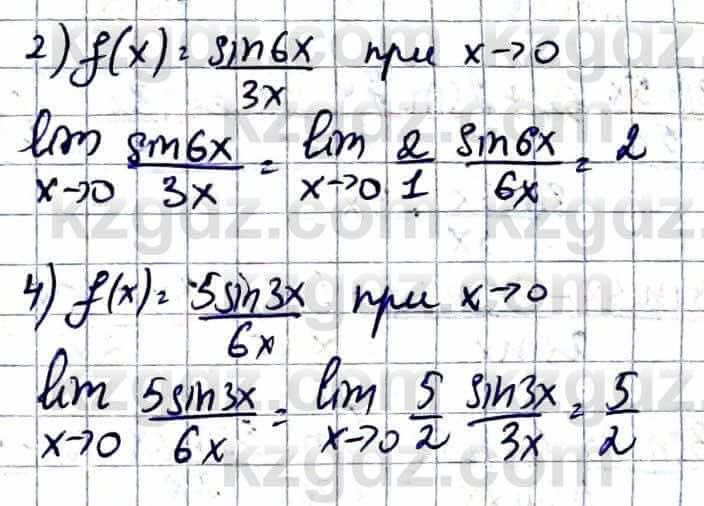 2) f(x) = sin6x/3x при x→0
lim x→0 sin6x/3x = lim x→0 2/1 sin6x/6x = 2
4) f(x) = 5sin3x/6x при x→0
lim x→0 5sin3x/6x = lim x→0 5/2 sin3x/3x = 5/2
kzgdz.com